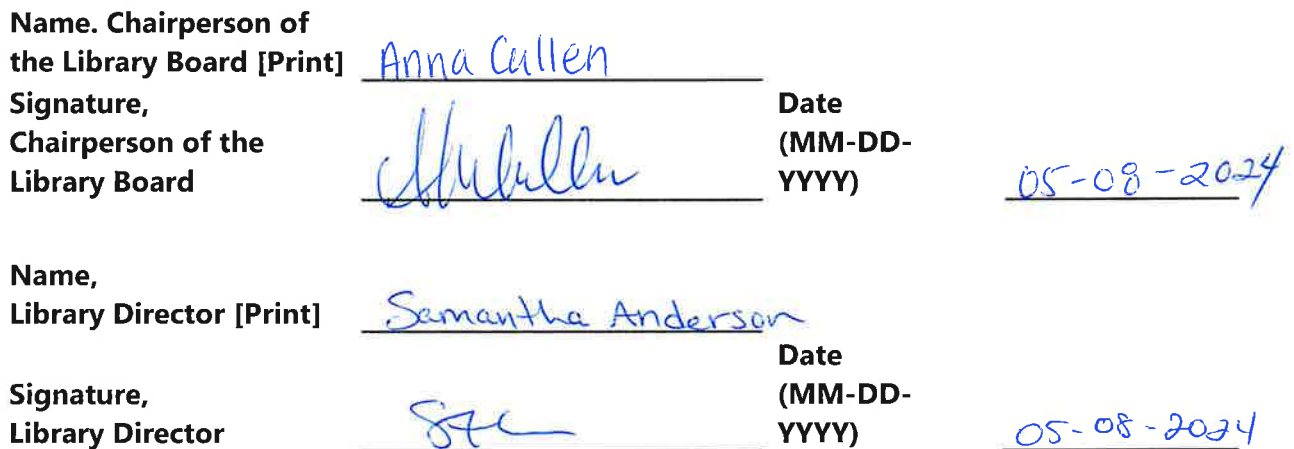 Name. Chairperson of
the Library Board [Print] Anna Cullen
Signature,
Chairperson of the
Library Board
Date
(MM-DD-
YYYY) 05-08-2024
Name,
Library Director [Print] Samantha Anderson
Signature,
Library Director
Date
(MM-DD-
YYYY) 05-08-2024